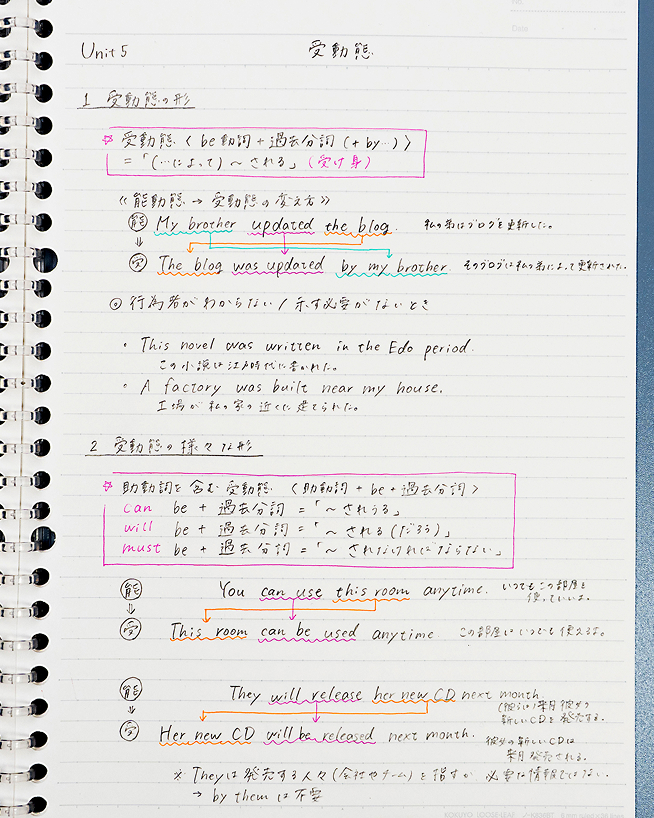 Unit 5 受動態
1 受動態の形
☆ 受動態 〈 be 動詞 + 過去分詞 (+ by…) 〉
= 「(…によって) ～される」 (受け身)
《 能動態 → 受動態の変え方 》
能 My brother updated the blog. 私の弟はブログを更新した。
⇓
受 The blog was updated by my brother. そのブログは私の弟によって更新された。
◎ 行為者がわからない / 示す必要がないとき
・ This novel was written in the Edo period.
この小説は江戸時代に書かれた。
・ A factory was built near my house.
工場が私の家の近くに建てられた。
2 受動態の様々な形
☆ 助動詞を含む受動態 〈 助動詞 + be + 過去分詞 〉
can be + 過去分詞 = 「～されうる」
will be + 過去分詞 = 「～される(だろう)」
must be + 過去分詞 = 「～されなければならない」
能 You can use this room anytime. いつでもこの部屋を
使っていいよ。
⇓
受 This room can be used anytime. この部屋はいつでも使えるよ。
能 They will release her new CD next month.
(彼らは)来月彼女の
新しいCDを発売する。
⇓
受 Her new CD will be released next month. 彼女の新しいCDは
来月発売される。
※ Theyは発売する人々(会社やチーム)を指すが 必要な情報ではない。
→ by them は不要
KOKUYO LOOSE-LEAF